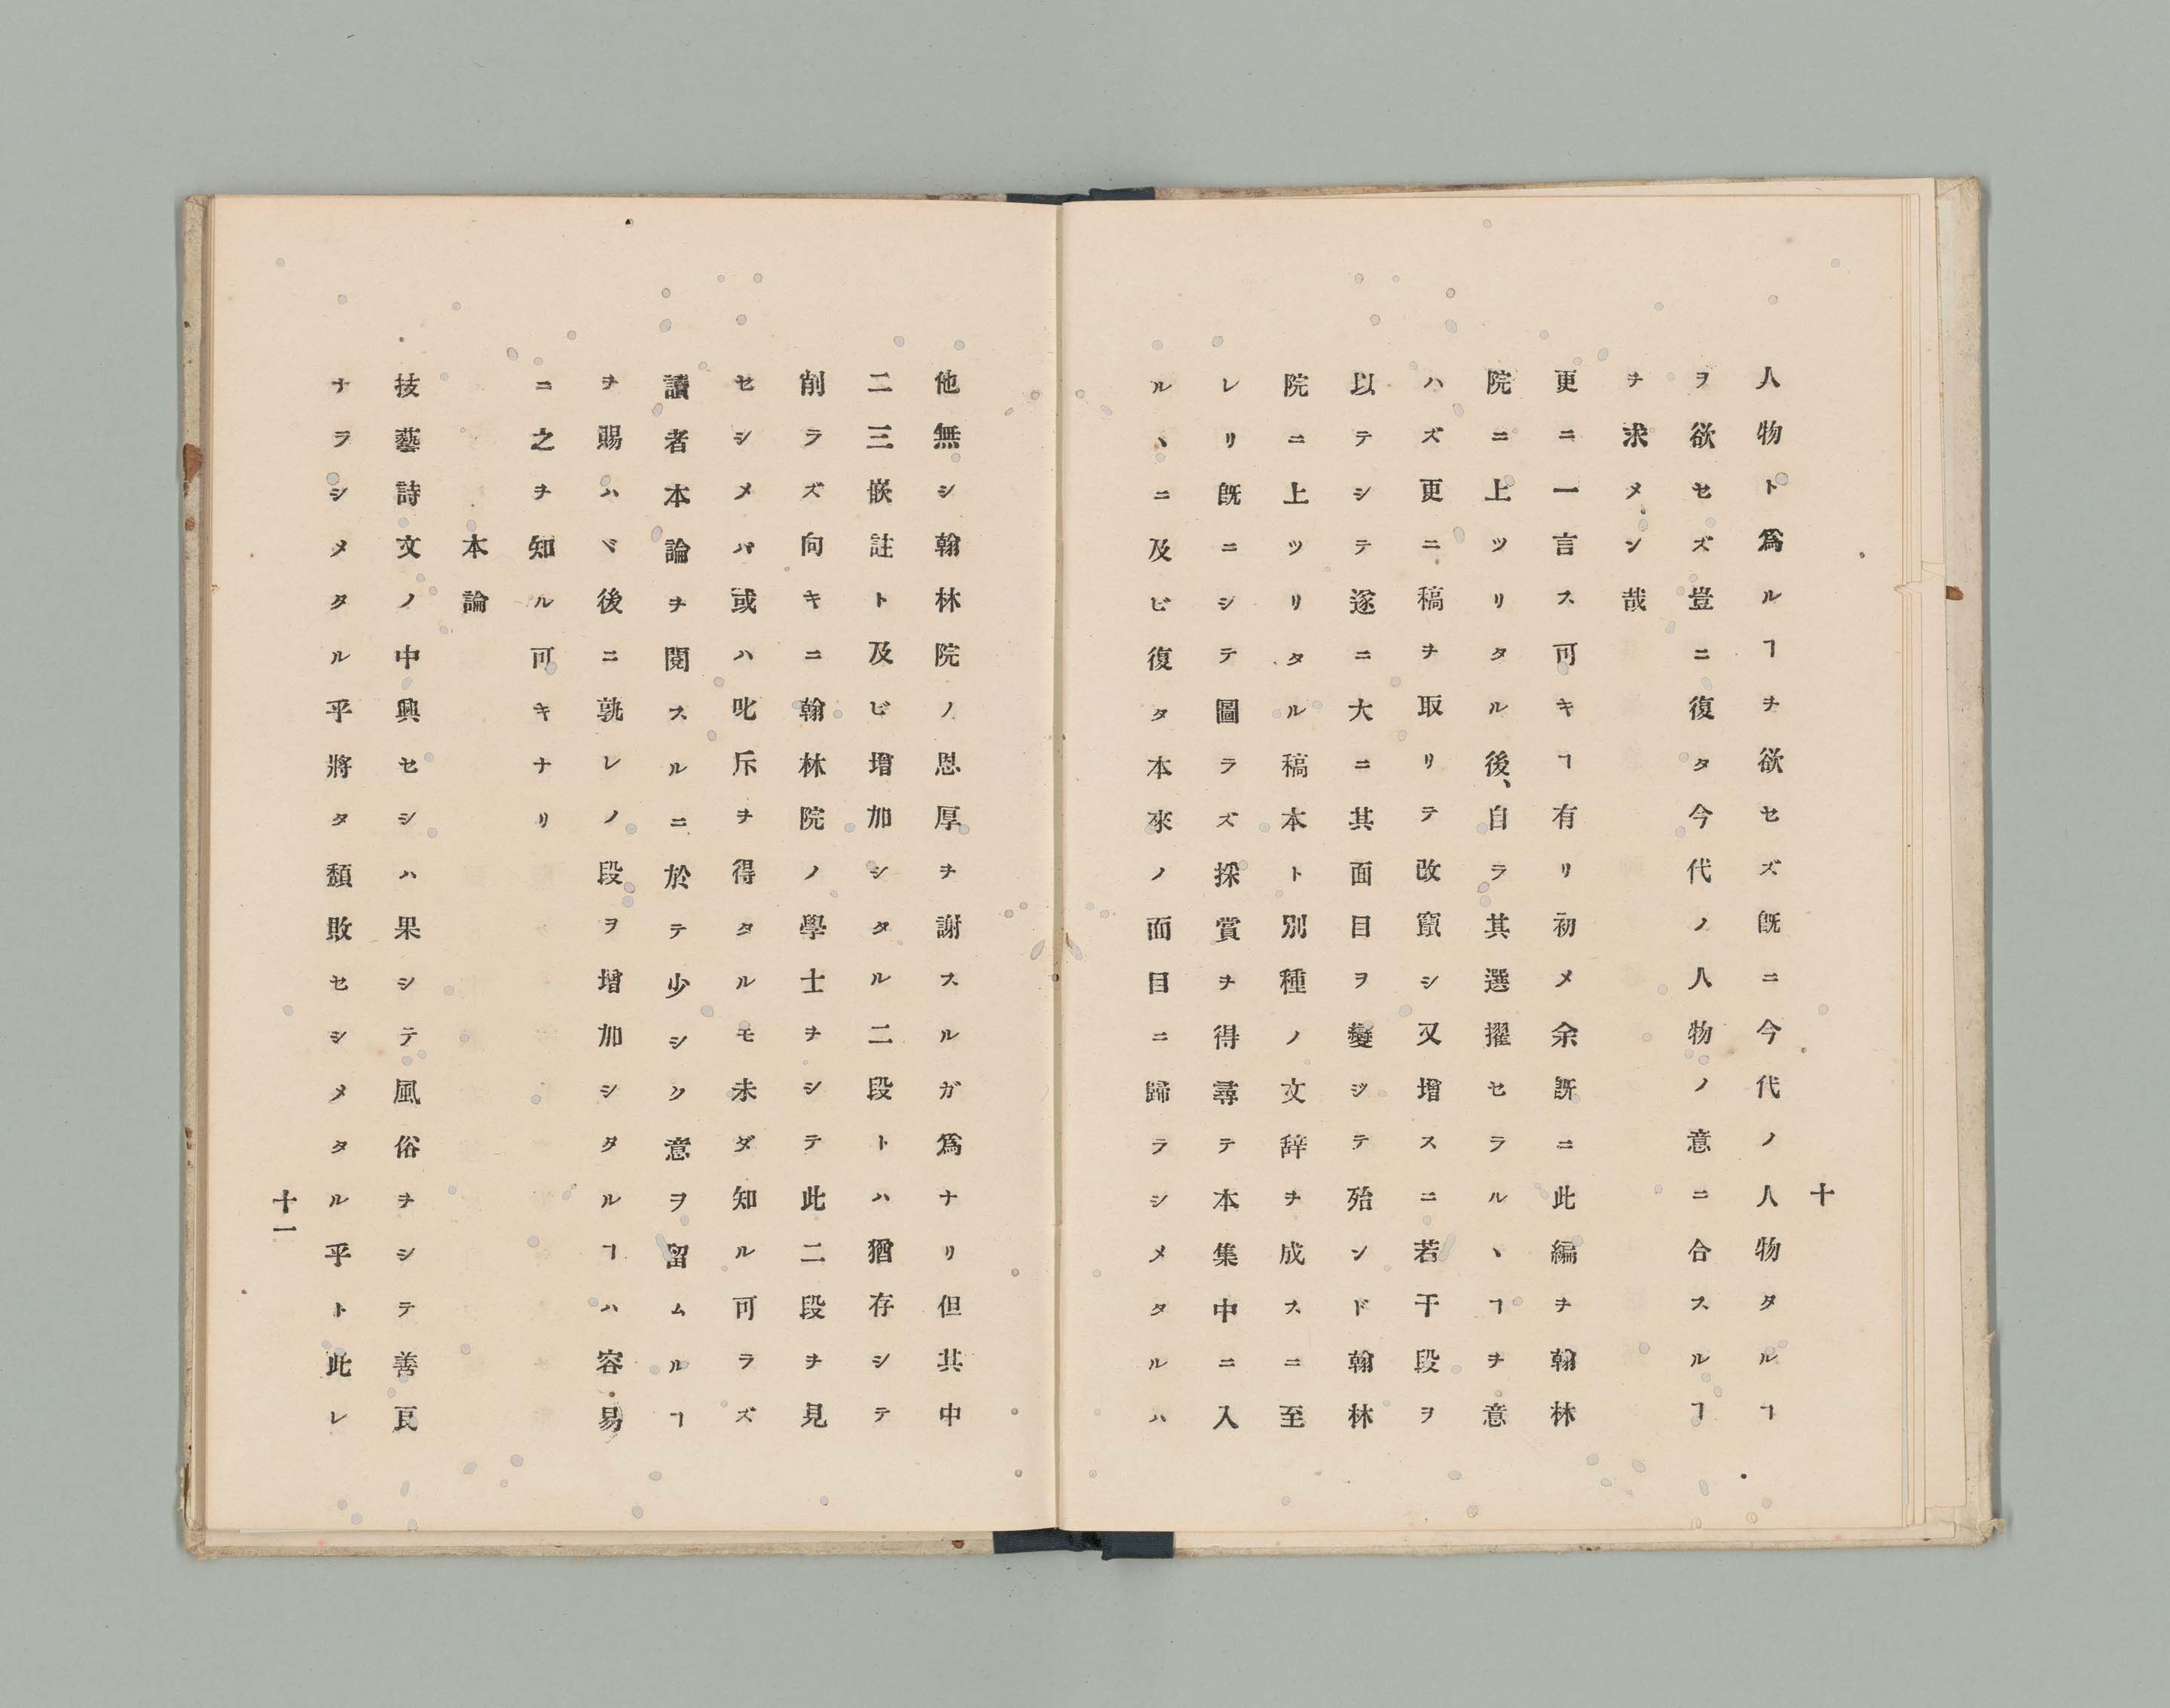 十
人物ト爲ルヿヲ欲セズ既ニ今代ノ人物タルヿ
ヲ欲セズ豈ニ復タ今代ノ人物ノ意ニ合スルヿ
ヲ求メン哉
更ニ一言ス可キヿ有リ初メ余既ニ此編ヲ翰林
院ニ上ツリタル後、自ラ其選擢セラルヽヿヲ意
ハズ更ニ稿ヲ取リテ改竄シ又增スニ若干段ヲ
以テシテ遂ニ大ニ其面目ヲ變ジテ殆ンド翰林
院ニ上ツリタル稿本ト別種ノ文辞ヲ成スニ至
レリ既ニシテ圖ラズ採賞ヲ得尋テ本集中ニ入
ルヽニ及ビ復タ本來ノ面目ニ歸ラシメタルハ
他無シ翰林院ノ恩厚ヲ謝スルガ爲ナリ但其中
二三嵌註ト及ビ增加シタル二段トハ猶存シテ
削ラズ向キニ翰林院ノ學士ヲシテ此二段ヲ見
セシメバ或ハ叱斥ヲ得タルモ未ダ知ル可ラズ
讀者本論ヲ閱スルニ於テ少シク意ヲ留ムルヿ
ヲ賜ハヾ後ニ孰レノ段ヲ增加シタルヿハ容易
ニ之ヲ知ル可キナリ
本論
技藝詩文ノ中興セシハ果シテ風俗ヲシテ善良
ナラシメタル乎將タ頽敗セシメタル乎ト此レ
十一